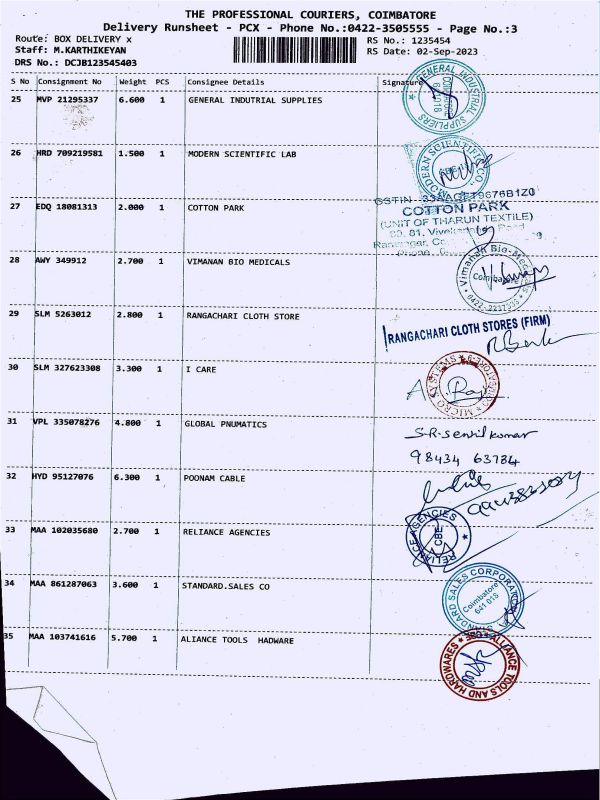 THE PROFESSIONAL COURIERS, COIMBATORE
Delivery Runsheet - PCX - Phone No.:0422-3505555 - Page No.:3
Route: BOX DELIVERY x RS No.: 1235454
Staff: M.KARTHIKEYAN RS Date: 02-Sep-2023
DRS No.: DCJB123545403
S No Consignment No Weight PCS Consignee Details Signature
25 MVP 21295337 6.600 1 GENERAL INDUTRIAL SUPPLIES
GENERAL INDUSTRIAL SUPPLIERS
26 HRD 709219581 1.500 1 MODERN SCIENTIFIC LAB
MODERN SCIENTIFIC CO.
27 EDQ 18081313 2.000 1 COTTON PARK
GSTIN
COTTON PARK
(UNIT OF THARUN TEXTILE)
28 AWY 349912 2.700 1 VIMANAN BIO MEDICALS
Coimbatore
29 SLM 5263012 2.800 1 RANGACHARI CLOTH STORE
RANGACHARI CLOTH STORES (FIRM)
30 SLM 327623308 3.300 1 I CARE
MICRO SYSTEMS
31 VPL 335078276 4.800 1 GLOBAL PNUMATICS
S.R.Senthilkumar
98434 63784
32 HYD 95127076 6.300 1 POONAM CABLE
33 MAA 102035680 2.700 1 RELIANCE AGENCIES
RELIANCE AGENCIES
CBE
34 MAA 861287063 3.600 1 STANDARD.SALES CO
STANDARD SALES CORPORATION
Coimbatore
641 018
35 MAA 103741616 5.700 1 ALIANCE TOOLS HADWARE
ALLIANCE TOOLS AND HARDWARES